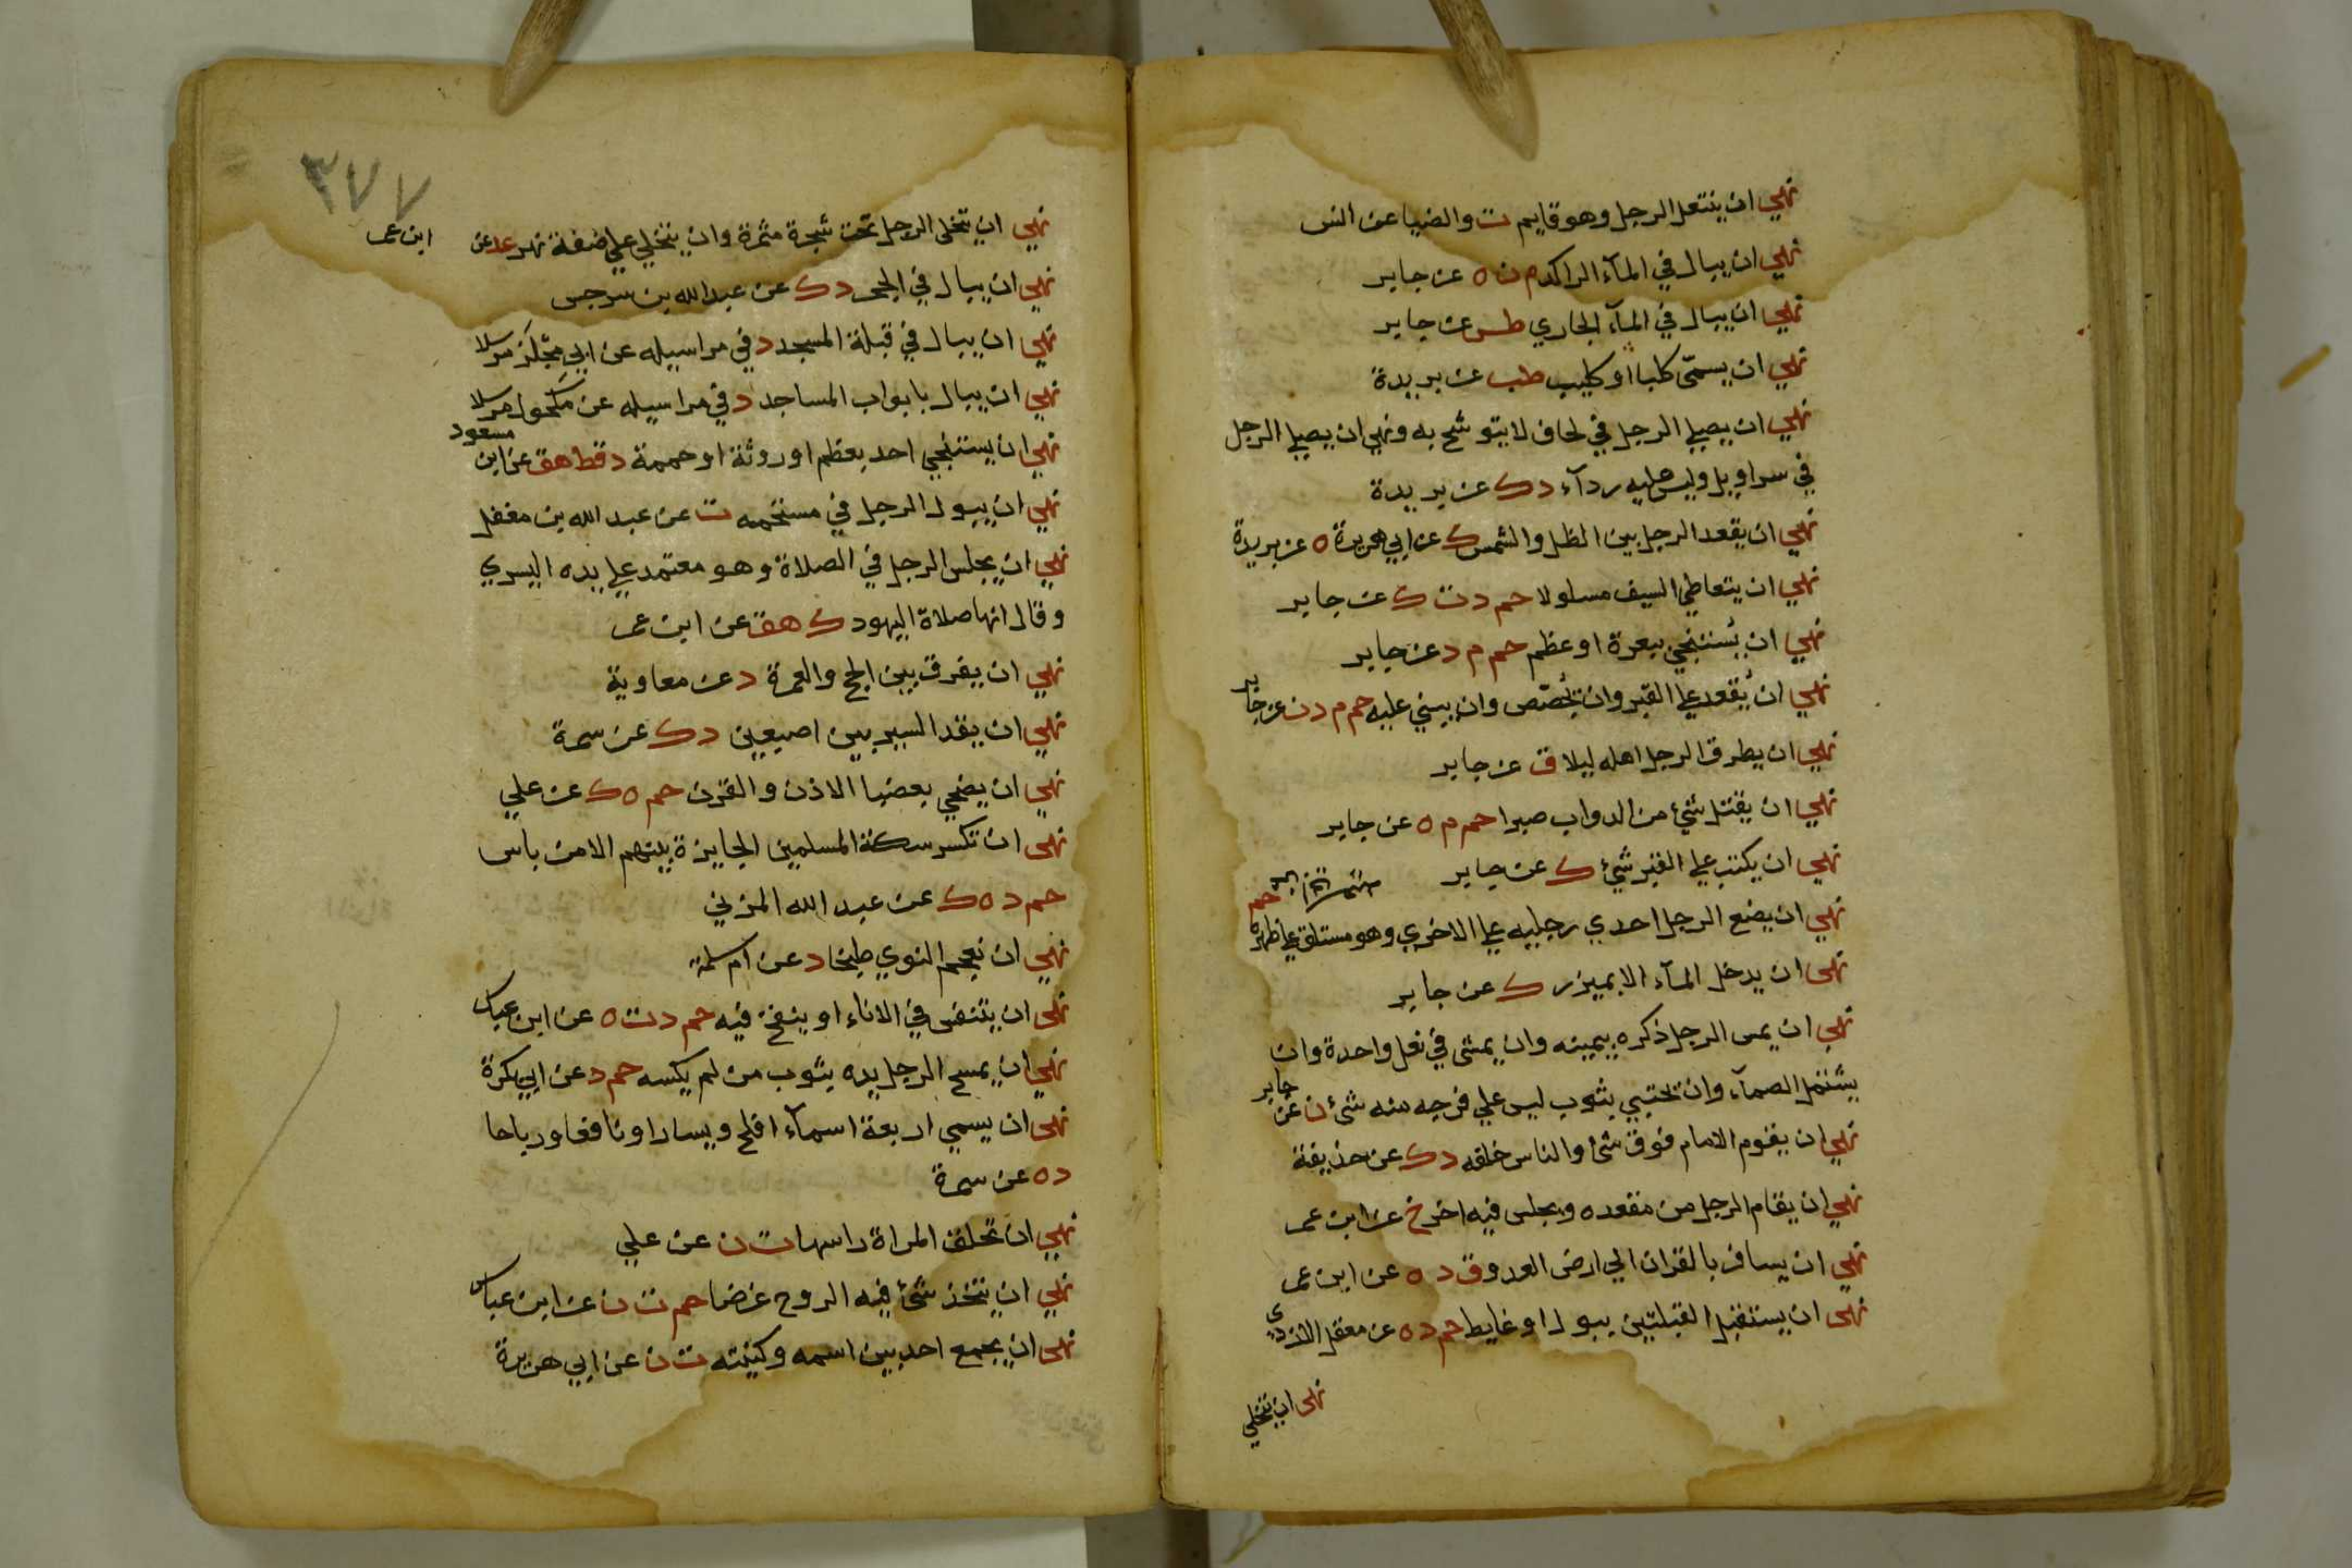 نهي ان ينتعل الرجل وهو قايم ت والضيا عن انس
نهي ان يبال في المآء الراكد م ن ه عن جابر
نهي ان يبال في المآء الجاري طس عن جابر
نهي ان يسمّى كلبا او كليب طب عن بريدة
نهي ان يصلي الرجل في لحاف لا يتوشح به ونهي ان يصلي الرجل
في سراويل وليس عليه ردآء د ك عن بريدة
نهي ان يقعد الرجل بين الظل والشمس ك عن ابي هريرة ه عن بريدة
نهي ان يتعاطي السيف مسلولا حم د ت ك عن جابر
نهي ان يستنجي ببعرة او عظم حم م د عن جابر
نهي ان يقعد علي القبر وان يجصص وان يبني عليه حم م د ن عن جابر
نهي ان يطرق الرجل اهله ليلا ق عن جابر
نهي ان يقتل شئ من الدواب صبرا حم م ه عن جابر
نهي ان يكتب علي القبر شئ ك عن جابر
نهي ان يضع الرجل احدي رجليه علي الاخري وهو مستلق علي ظهره حم
نهى ان يدخل المآء الا بميزر ك عن جابر
نهي ان يمس الرجل ذكره بيمينه وان يمشى في نعل واحدة وان
يشتمل الصمآء وان يحتبي بثوب ليس علي فرجه منه شئ ن عن جابر
نهي ان يقوم الامام فوق شئ والناس خلفه د ك عن حذيفة
نهي ان يقام الرجل من مقعده ويجلس فيه اخر خ عن ابن عمر
نهي ان يسافر بالقران الي ارض العدو ق د ه عن ابن عمر
نهى ان يستقبل القبلتين ببول او غايط حم د ه عن معقل الازدي
نهى ان يتخلي
٣٧٧
نهي ان يتخلى الرجل تحت شجرة مثمرة وان يتخلي علي ضفة نهر عد عن ابن عمر
نهي ان يبال في الجحر د ك عن عبد الله بن سرجس
نهي ان يبال في قبلة المسجد د في مراسيله عن ابي مجلز مرسلا
نهي ان يبال بابواب المساجد د في مراسيله عن مكحول مرسلا
نهي ان يستنجي احد بعظم او روثة او حممة د قط هق عن ابن مسعود
نهي ان يبول الرجل في مستحمه ت عن عبد الله بن مغفل
نهي ان يجلس الرجل في الصلاة وهو معتمد علي يده اليسري
وقال انها صلاة اليهود ك هق عن ابن عمر
نهي ان يفرق بين الحج والعمرة د عن معاوية
نهي ان يقد السير بين اصبعين د ك عن سمرة
نهي ان يضحي بعضبا الاذن والقرن حم ه ك عن علي
نهى ان تكسر سكة المسلمين الجايزة بينهم الا من باس
حم د ه ك عن عبد الله المزني
نهي ان نعجم النوي طبخا د عن ام سلمة
نهى ان يتنفس في الاناء او ينفخ فيه حم د ت ه عن ابن عباس
نهي ان يمسح الرجل يده بثوب من لم يكسه حم د عن ابي بكرة
نهى ان يسمي اربعة اسمآء افلح ويسارا ونافعا ورباحا
د ه عن سمرة
نهي ان تحلق المراة راسها ت ن عن علي
نهي ان يتخذ شئ فيه الروح غرضا حم ت ن عن ابن عباس
نهى ان يجمع احد بين اسمه وكنيته ت ن عن ابي هريرة